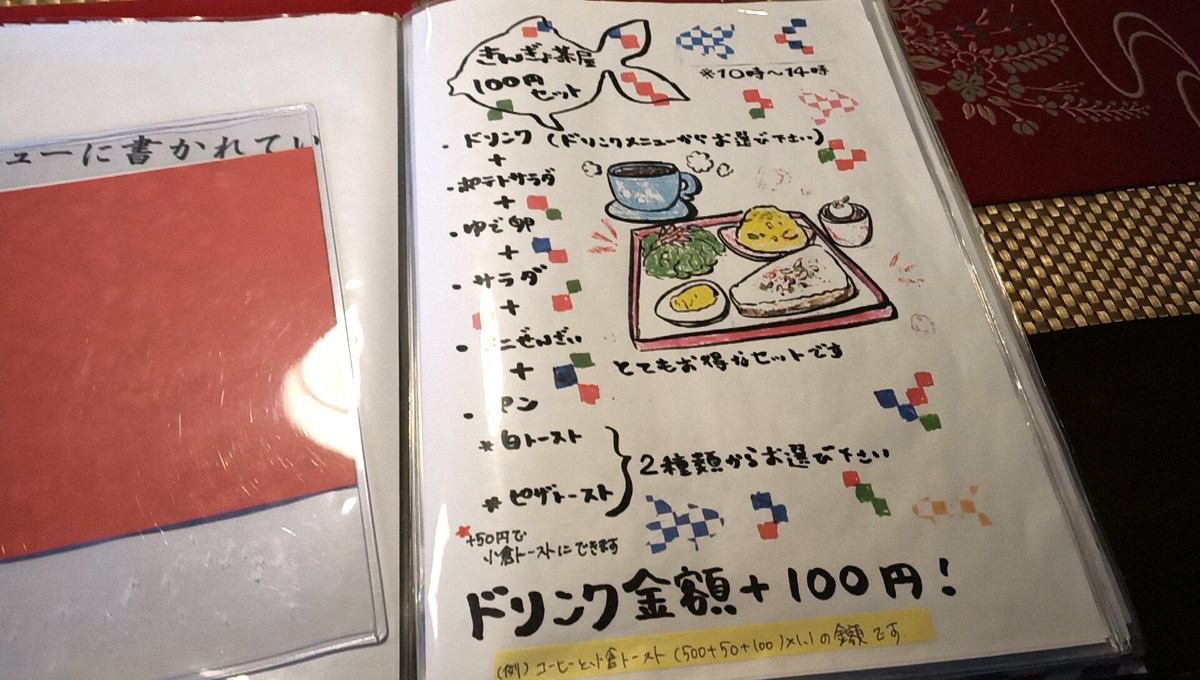 ューに書かれてい
きんぎょ茶屋
100円
セット
※10時〜14時
・ドリンク（ドリンクメニューからお選び下さい）
+
・ポテトサラダ
+
・ゆで卵
+
・サラダ
+
・ニぜんざい
+
・パン
＊白トースト
＊ピザトースト
2種類からお選び下さい
とてもお得なセットです
+50円で
小倉トーストにできます
ドリンク金額+100円！
（例）コーヒーと小倉トースト（500+50+100）×1.1の金額です